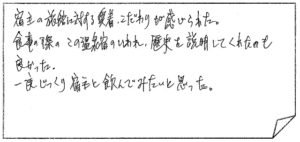 宿主の旅館に対する愛着、こだわりが感じられた。
食事の際の この温泉宿のいわれ、歴史を説明してくれたのも
良かった。
一度じっくり宿主と飲んでみたいと思った。